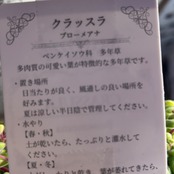 クラッスラ
ブローメアナ
ベンケイソウ科　多年草
多肉質の可愛い葉が特徴的な多年草です。
・置き場所
日当たりが良く、風通しの良い場所を
好みます。
夏は涼しい半日陰で管理してください。
・水やり
【春・秋】
土が乾いたら、たっぷりと灌水して
ください。
【夏・冬】